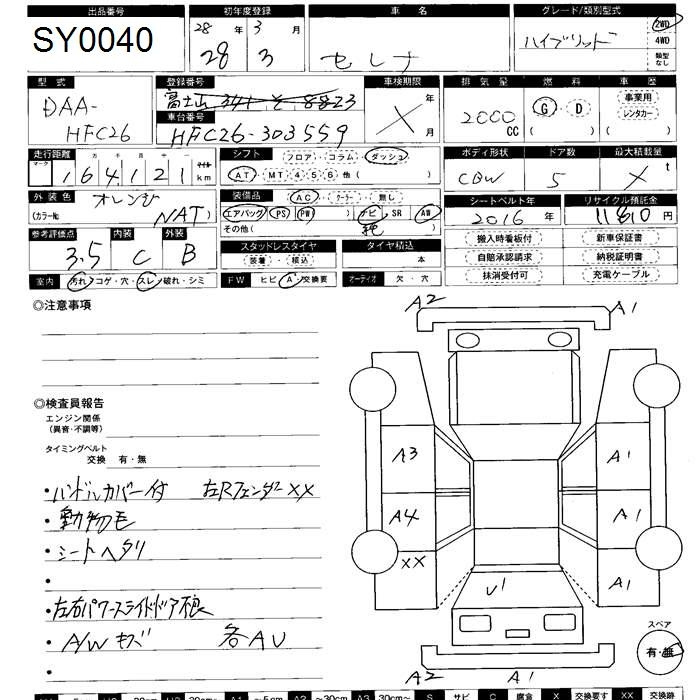 出品番号 初年度登録 車名 グレード/類別型式
SY0040 28年 3月 28 3 セレナ ハイブリッド 2WD 4WD 類型なし
型式 登録番号 車検期限 排気量 燃料 車歴
DAA-HFC26 富士山 341 そ 8823 X 年 月 2000 CC G・D ( ) 事業用 レンタカー ( )
車台番号
HFC26-303559
走行距離 シフト ボディ形状 ドア数 最大積載量
マーク 十万千百十一 マイル km 164,121 フロア・コラム・ダッシュ
AT・MT(4 5 6 他( ) CBW 5 X t
外装色 オレンジ 装備品 AC・クーラー・無し シートベルト年 リサイクル預託金
(カラーNo. NAT) エアバッグ PS PW ( ) ナビ SR AW 2016年 11,810円
その他( 純 )
参考評価点 内装 外装 スタッドレスタイヤ タイヤ積込 搬入時看板付 新車保証書
3.5 C B 装着・積込 本 自賠承認請求 納税証明書
抹消受付可 充電ケーブル
室内 汚れ・コゲ・穴・スレ・破れ・シミ FW ヒビ・A・交換要 オーディオ 欠・穴
◎注意事項
A2 A1
◎検査員報告
エンジン関係
(異音・不調等)
タイミングベルト
交換 有・無
A3 A1
・ハンドルカバー付 左Rフェンダー XX
・動物毛
A4 A1
・シートヘタリ
XX
・
U1 A1
・左右パワースライドドア不良
・A/Wキズ 各AU
スペア
有・無
・
A2 A1